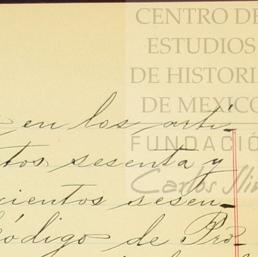 CENTRO DE
ESTUDIOS
DE HISTORI
DE MEXICO
FUNDACIÓ
Carlos Sli
en los artí-
tos sesenta y
cientos sesen-
Código de Pro-